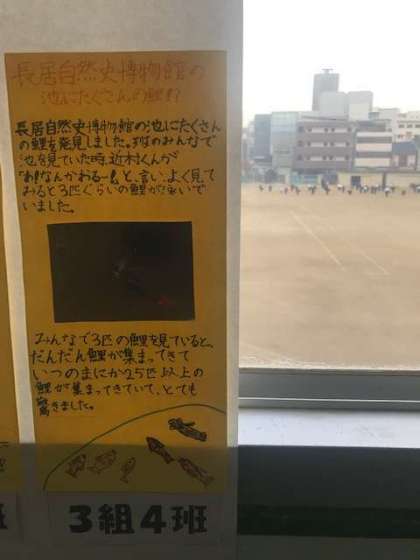 長居自然史博物館の
池にたくさんの鯉が!?
長居自然史博物館の池にたくさん
の鯉を発見しました。班のみんなで
池を見ていた時、近村くんが
「わ!なんかおるー!」と、言い、よく見て
みると3匹ぐらいの鯉が泳いで
いました。
みんなで3匹の鯉を見ていると、
だんだん鯉が集まってきて
いつのまにか25匹以上の
鯉が集まってきていて、とても
驚きました。
3組4班
班